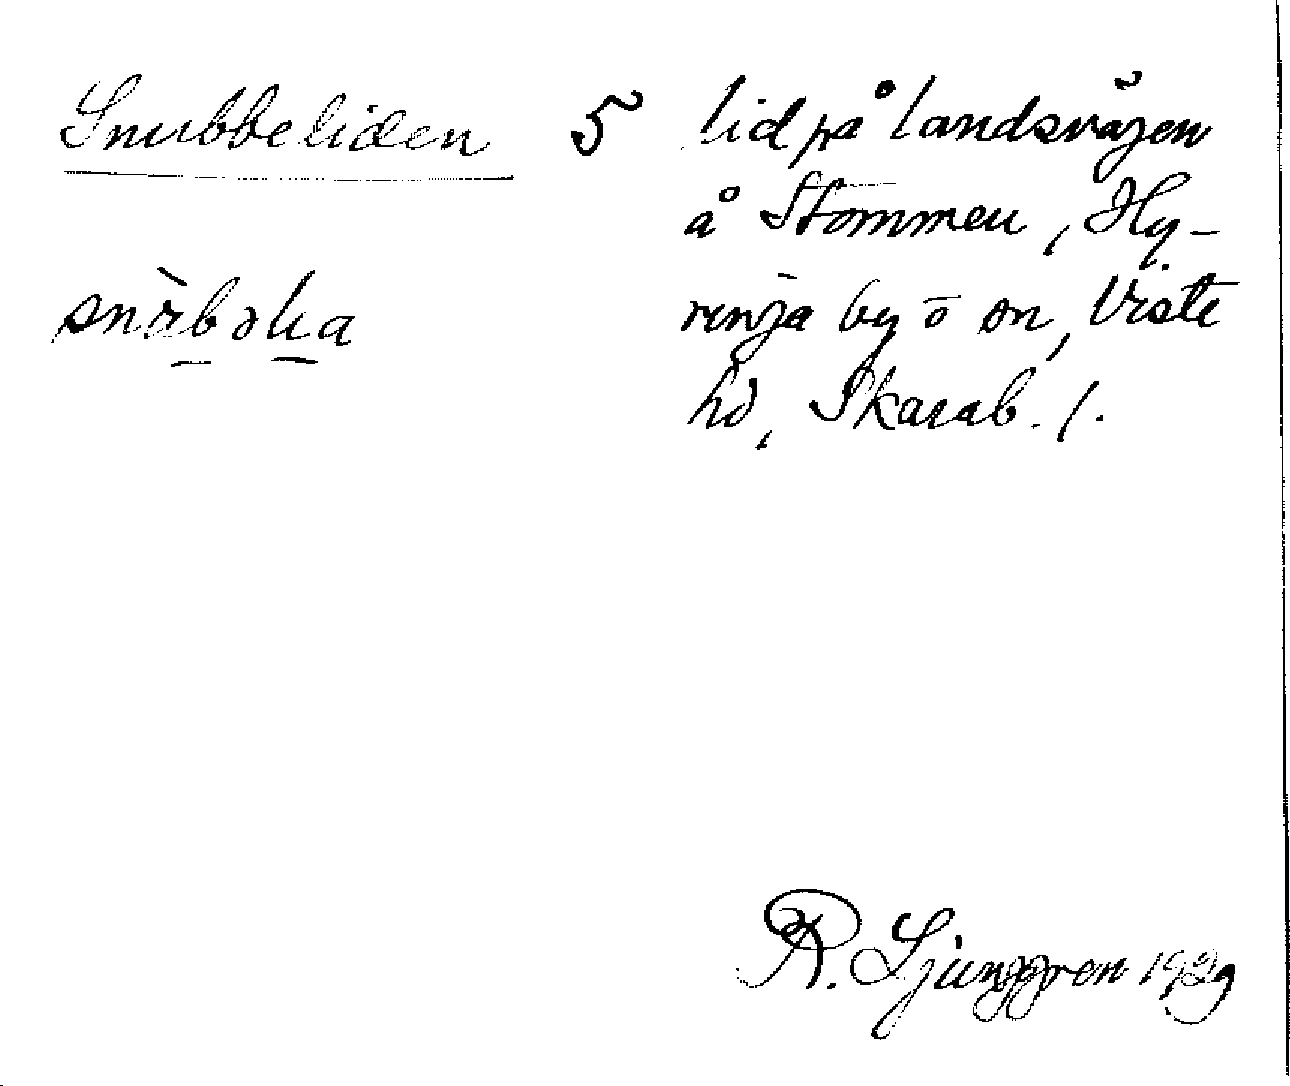 Snubbeliden 5 lid på landsvägen
å Stommen, Hy-
renja by o sn, Viste
hd, Skarab. l.
R. Ljunggren 1929